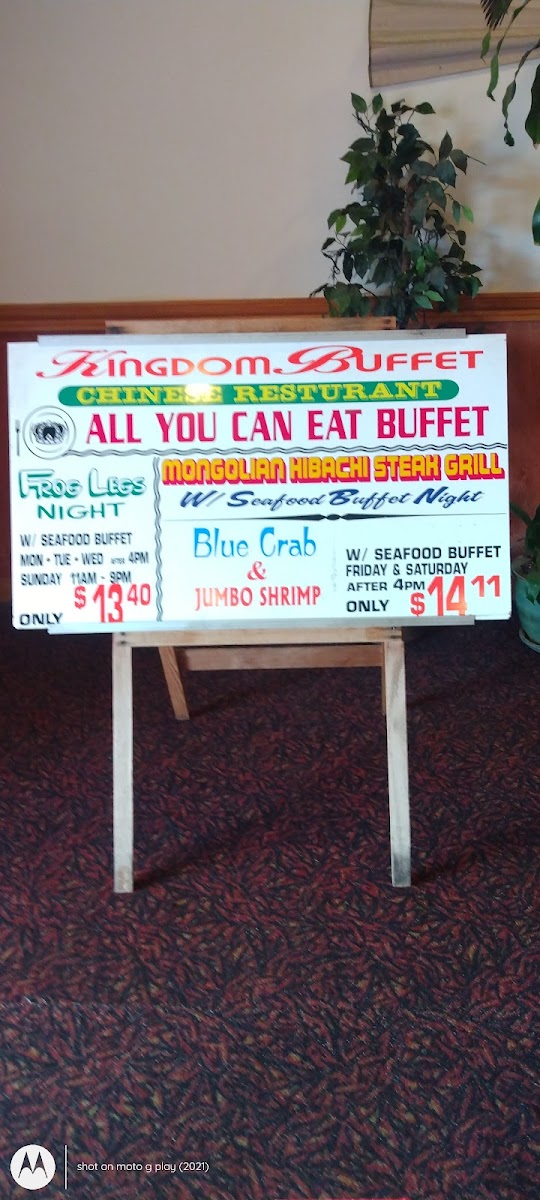 KINGDOM BUFFET
CHINESE RESTURANT
ALL YOU CAN EAT BUFFET
FROG LEGS
NIGHT
W/ SEAFOOD BUFFET
MON • TUE • WED AFTER 4PM
SUNDAY 11AM - 9PM
ONLY $13.40
MONGOLIAN HIBACHI STEAK GRILL
W/ Seafood Buffet Night
Blue Crab
&
JUMBO SHRIMP
W/ SEAFOOD BUFFET
FRIDAY & SATURDAY
AFTER 4PM
ONLY $14.11
shot on moto g play (2021)